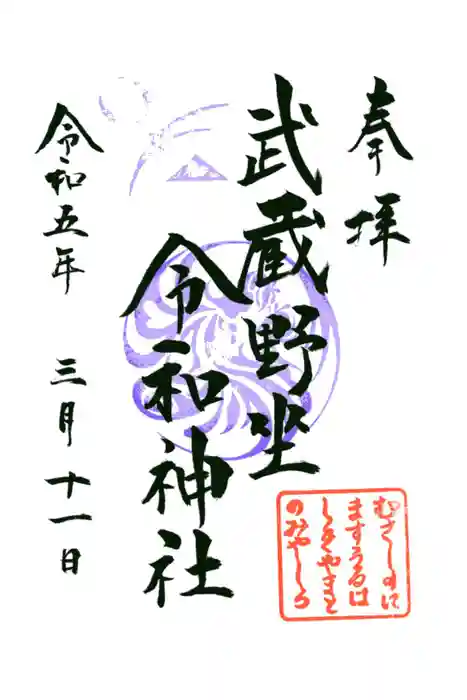 奉拝
武蔵野坐
令和神社
令和五年 三月十一日
むさしのに
ますうるは
しきやまと
のみやしろ